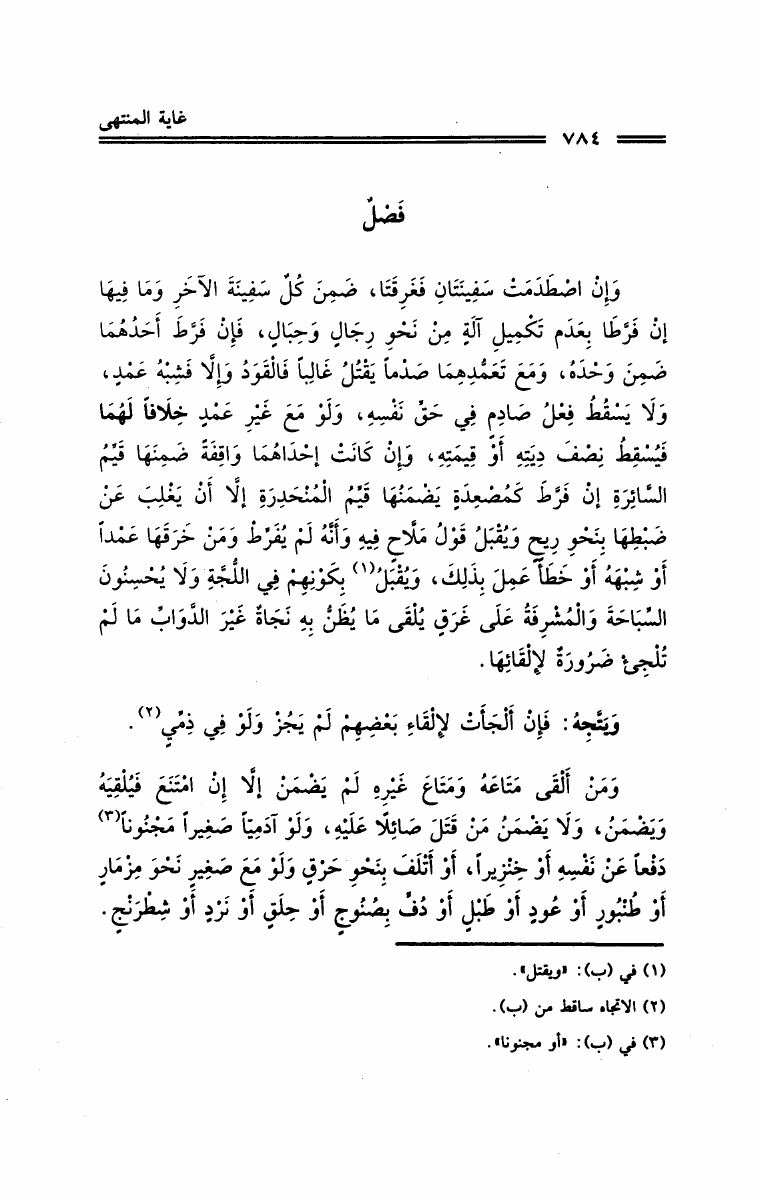 غاية المنتهى
٧٨٤
فَصْلٌ
وَإِنْ اصْطَدَمَتْ سَفِينَتَانِ فَغَرِقَتَا، ضَمِنَ كُلٌّ سَفِينَةَ الآخَرِ وَمَا فِيهَا
إنْ فَرَّطَا بِعَدَمِ تَكْمِيلِ آلَةٍ مِنْ نَحْوِ رِجَالٍ وَحِبَالٍ، فَإِنْ فَرَّطَ أَحَدُهُمَا
ضَمِنَ وَحْدَهُ، وَمَعَ تَعَمُّدِهِمَا صَدْماً يَقْتُلُ غَالِباً فَالْقَوَدُ وَإِلَّا فَشِبْهُ عَمْدٍ،
وَلَا يَسْقُطُ فِعْلُ صَادِمٍ فِي حَقِّ نَفْسِهِ، وَلَوْ مَعَ غَيْرِ عَمْدٍ خِلَافاً لَهُمَا
فَيُسْقِطُ نِصْفَ دِيَتِهِ أَوْ قِيمَتِهِ، وَإِنْ كَانَتْ إحْدَاهُمَا وَاقِفَةً ضَمِنَهَا قَيِّمُ
السَّائِرَةِ إنْ فَرَّطَ كَمُصْعِدَةٍ يَضْمَنُهَا قَيِّمُ الْمُنْحَدِرَةِ إلَّا أَنْ يَغْلِبَ عَنْ
ضَبْطِهَا بِنَحْوِ رِيحٍ وَيُقْبَلُ قَوْلُ مَلَّاحٍ فِيهِ وَأَنَّهُ لَمْ يُفَرِّطْ وَمَنْ خَرَقَهَا عَمْداً
أَوْ شِبْهَهُ أَوْ خَطَأً عَمِلَ بِذَلِكَ، وَيُقْبَلُ(١) بِكَوْنِهِمْ فِي اللُّجَّةِ وَلَا يُحْسِنُونَ
السِّبَاحَةَ وَالْمُشْرِفَةُ عَلَى غَرَقٍ يُلْقَى مَا يُظَنُّ بِهِ نَجَاةٌ غَيْرَ الدَّوَابِّ مَا لَمْ
تُلْجِئْ ضَرُورَةٌ لإِلْقَائِهَا.
وَيَتَّجِهُ: فَإِنْ أَلْجَأَتْ لإِلْقَاءِ بَعْضِهِمْ لَمْ يَجُزْ وَلَوْ فِي ذِمِّيٍ(٢).
وَمَنْ أَلْقَى مَتَاعَهُ وَمَتَاعَ غَيْرِهِ لَمْ يَضْمَنْ إلَّا إنْ امْتَنَعَ فَيُلْقِيَهُ
وَيَضْمَنُ، وَلَا يَضْمَنُ مَنْ قَتَلَ صَائِلًا عَلَيْهِ، وَلَوْ آدَمِيّاً صَغِيراً مَجْنُوناً(٣)
دَفْعاً عَنْ نَفْسِهِ أَوْ خِنْزِيراً، أَوْ أَتْلَفَ بِنَحْوِ حَرْقٍ وَلَوْ مَعَ صَغِيرٍ نَحْوَ مِزْمَارٍ
أَوْ طُنْبُورٍ أَوْ عُودٍ أَوْ طَبْلٍ أَوْ دُفٍّ بِصُنُوجٍ أَوْ حِلَقٍ أَوْ نَرْدٍ أَوْ شِطْرَنْجٍ.
(١) في (ب): «ويقتل».
(٢) الاتجاه ساقط من (ب).
(٣) في (ب): «أو مجنونا».